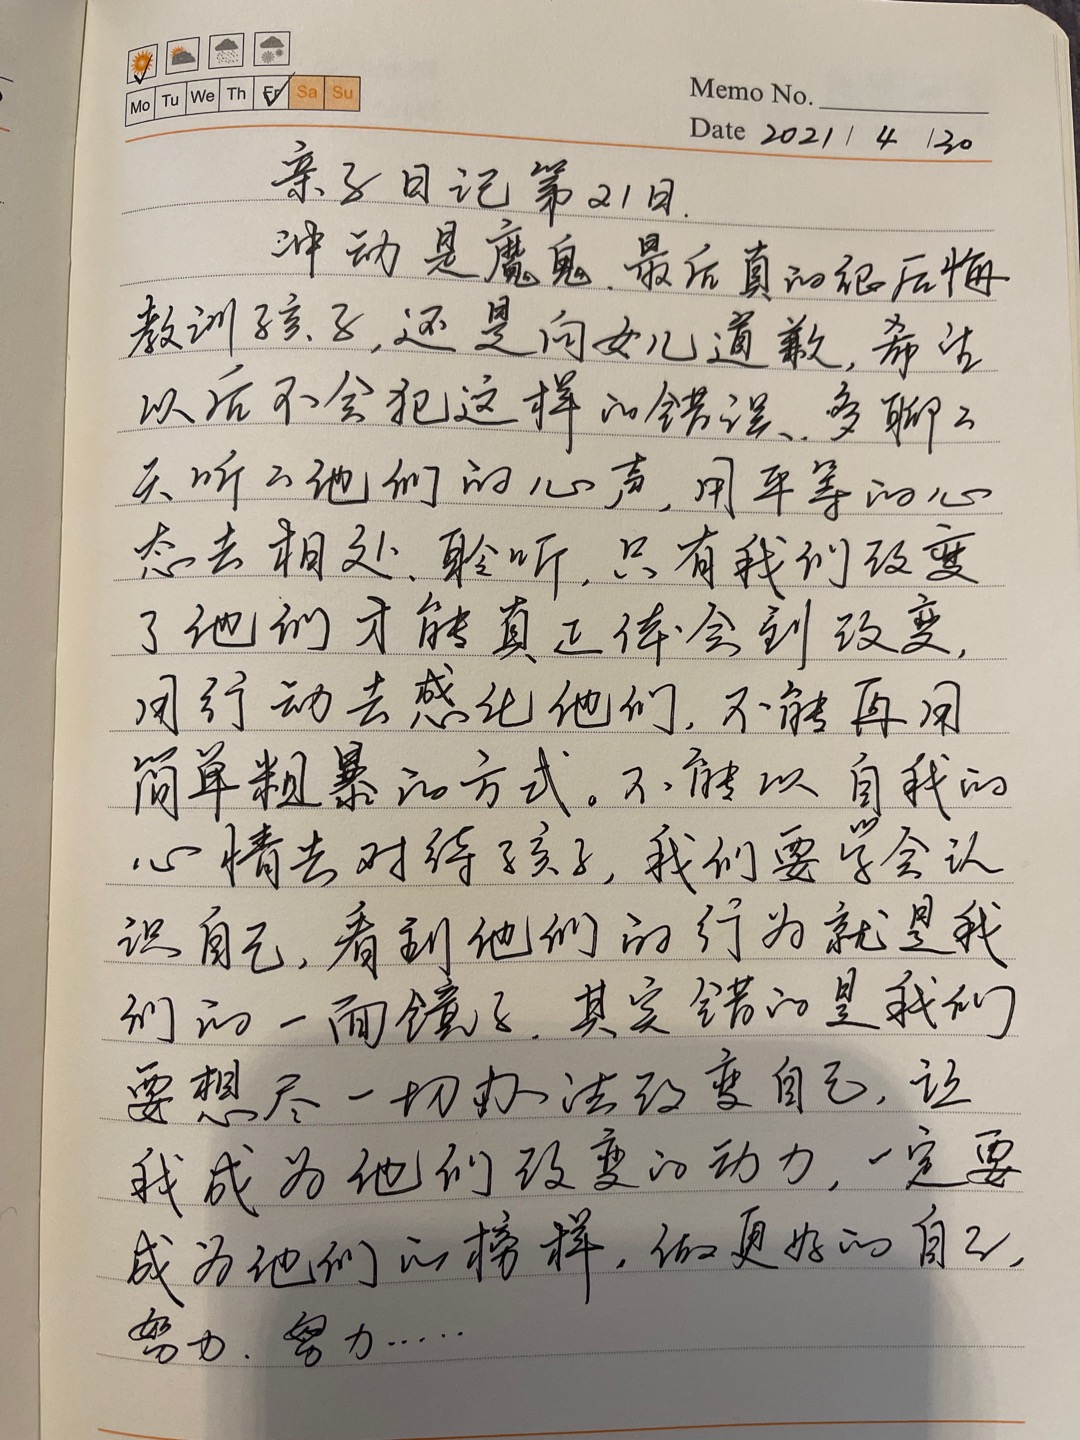 Mo Tu We Th Fr Sa Su
Memo No.
Date 2021 / 4 / 30
亲子日记第21日.
冲动是魔鬼.最后真的很后悔
教训孩子,还是向女儿道歉,希望
以后不会犯这样的错误、.多聊聊
天听听他们的心声,用平等的心
态去相处、聆听,只有我们改变
了他们才能真正体会到改变,
用行动去感化他们,不能再用
简单粗暴的方式。不能以自我的
心情去对待孩子,我们要学会认
识自己,看到他们的行为就是我
们的一面镜子.其实错的是我们
要想尽一切办法改变自己,让
我成为他们改变的动力,一定要
成为他们的榜样,做更好的自己,
努力.努力.....